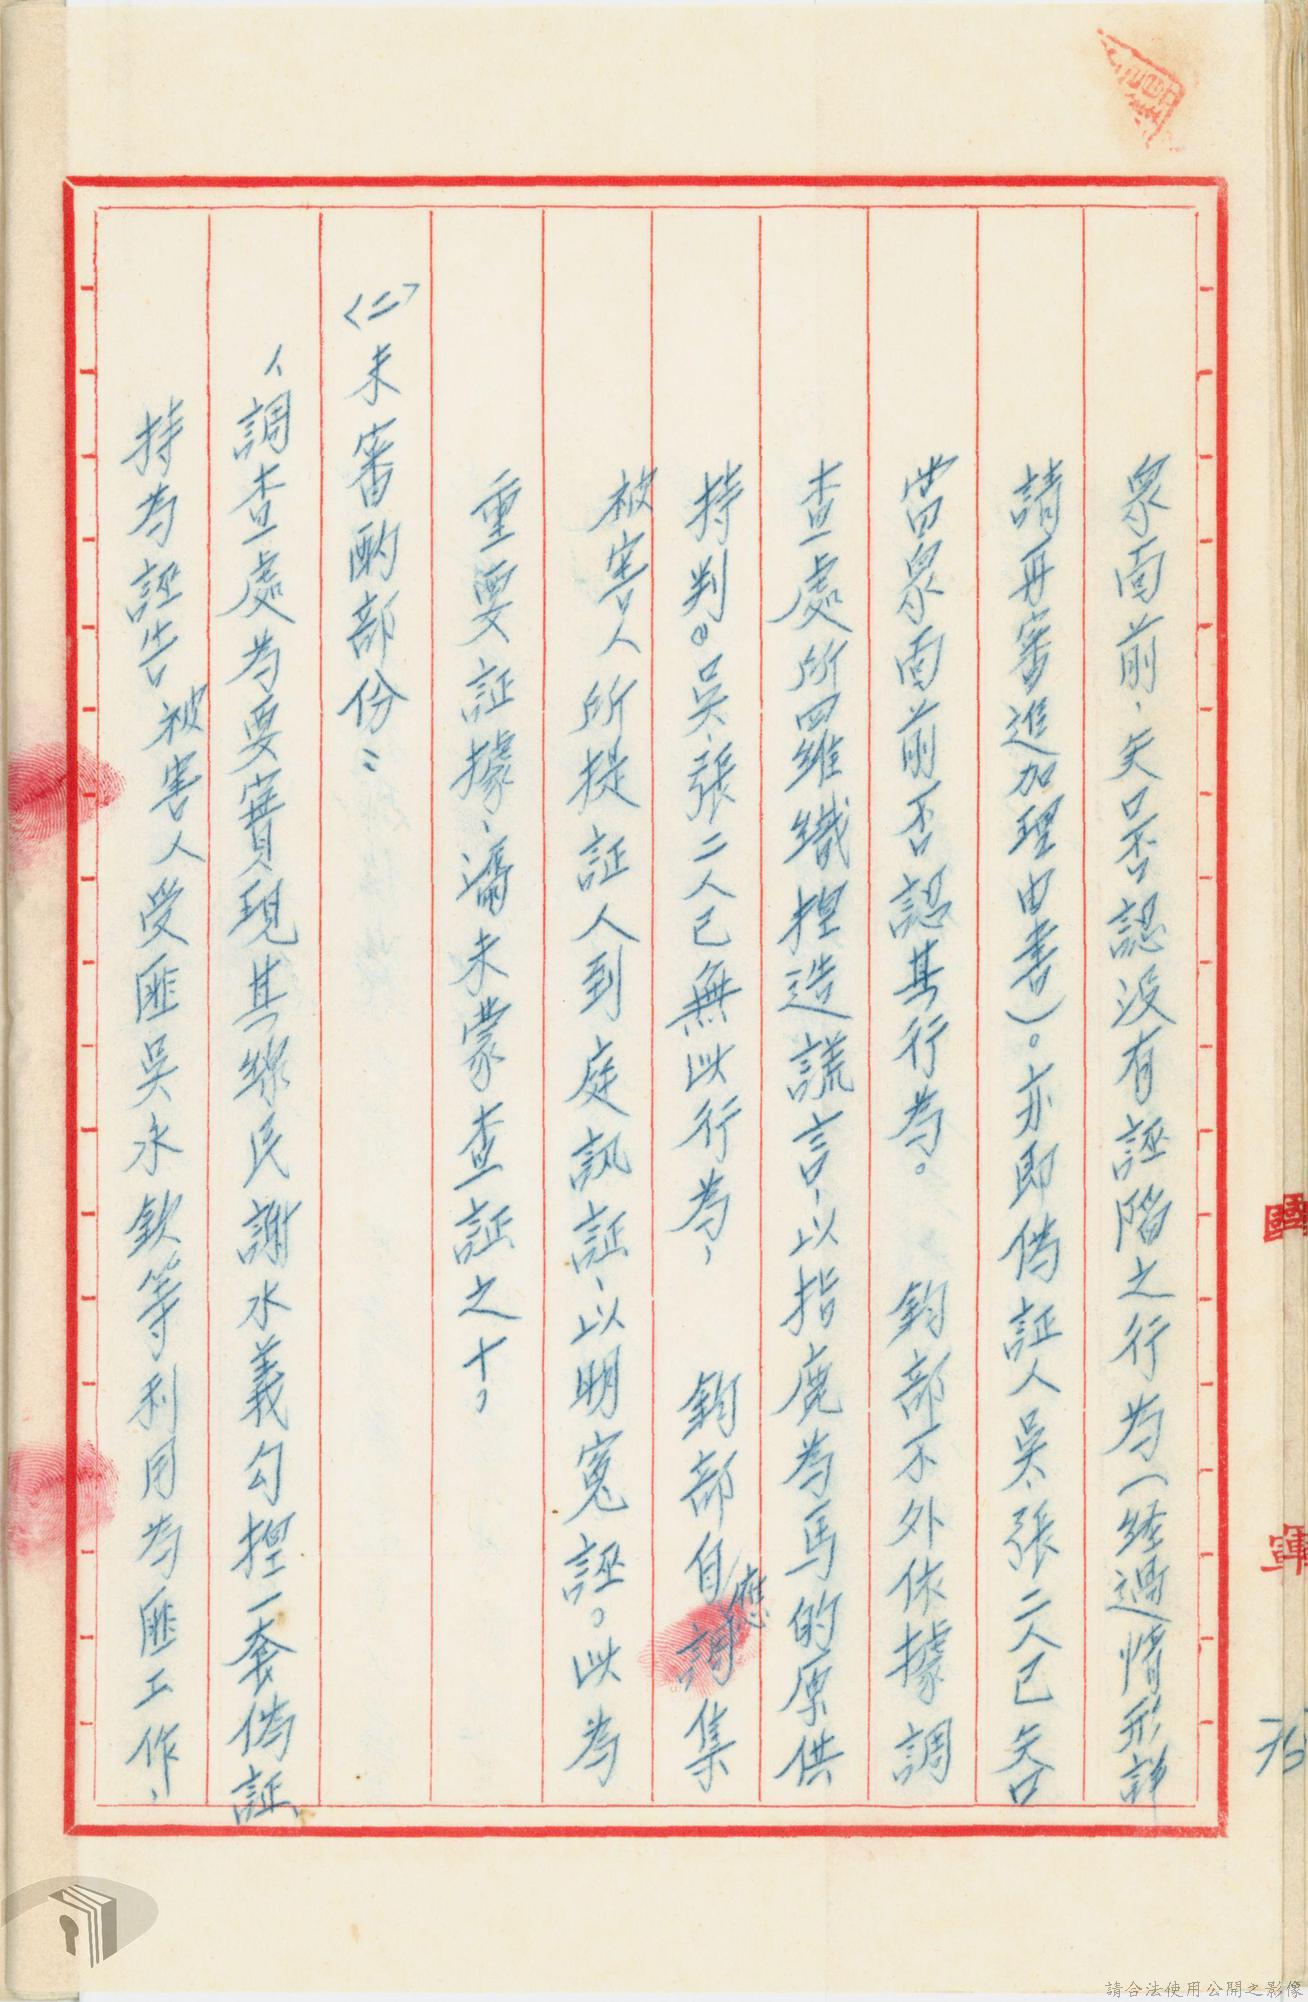 眾面前，矢口否認没有誣陷之行為（経過情形詳
請再審進加理由書）。亦即偽証人吳、張二人已矢口
當眾面前否認其行為。　鈞部不外依據調
查處所羅織捏造謊言，以指鹿為馬的原供
持判。吳、張二人已無此行為，　鈞部自應調集
被害人所提証人到庭訊証，以明寃誣。此為
重要証據，漏未蒙查証之十。
〈二〉未審酌部份：
1、調查處為要實現其線民謝水義勾捏一套偽証、
持為誣告被害人受匪吳永欽等利用為匪工作，
國
軍
請合法使用公開之影像